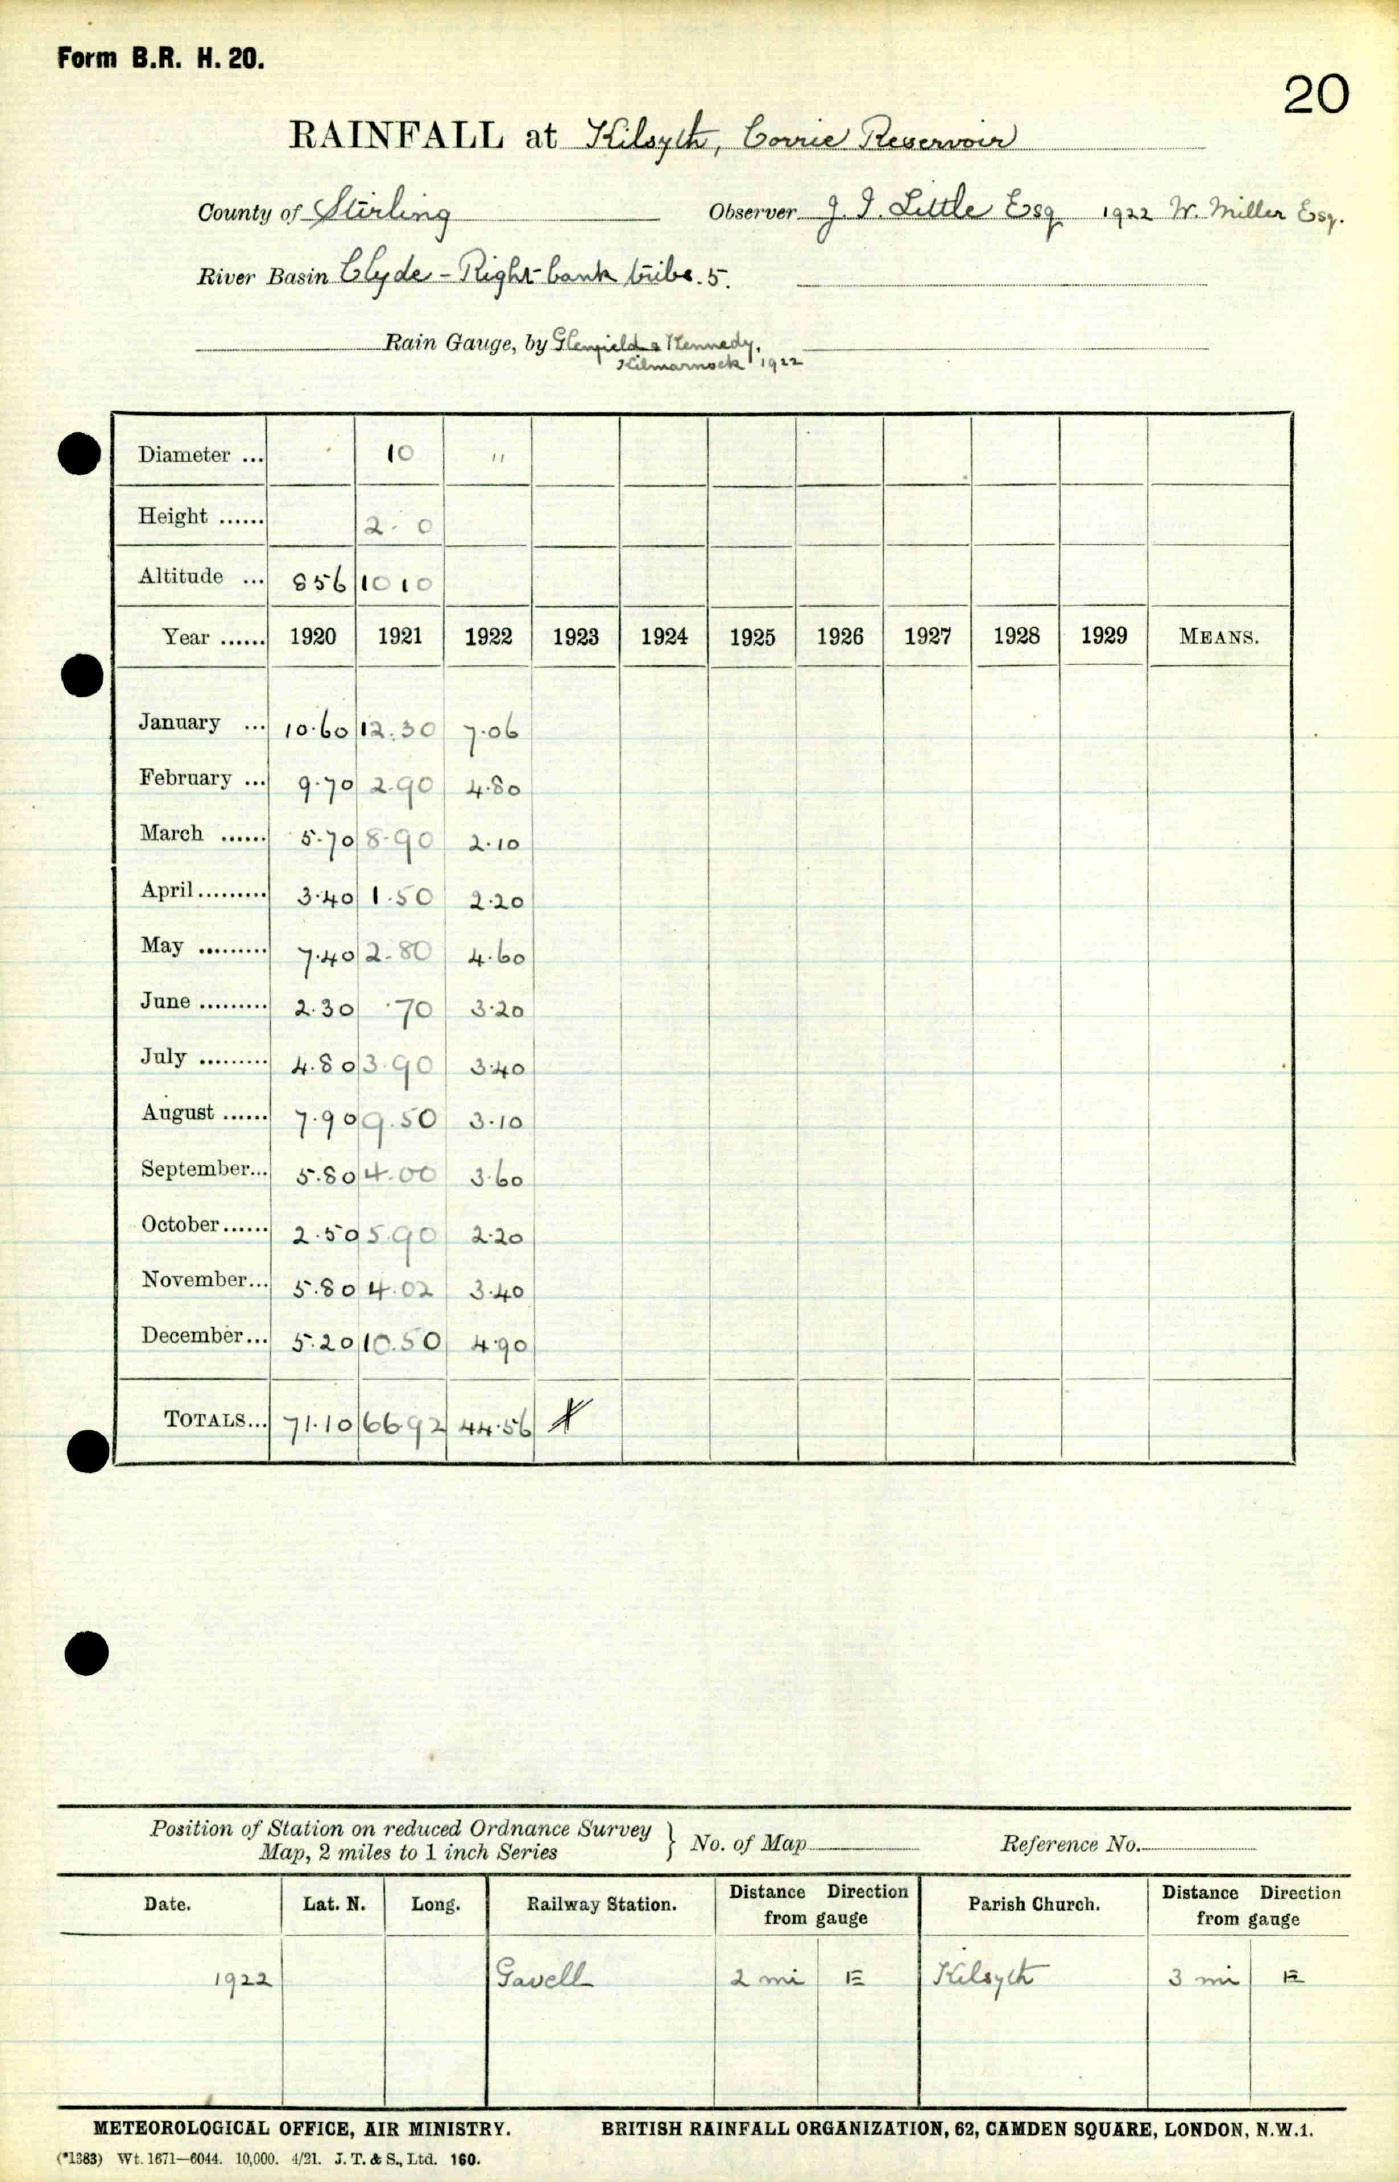 Form B.R. H. 20.
20
RAINFALL at Kilsyth, Corrie Reservoir
County of Stirling Observer J. I. Little Esq 1922 W. Miller Esq.
River Basin Clyde - Right bank tribs. 5.
Rain Gauge, by Glenfield & Kennedy,
Kilmarnock 1922
Diameter ... 10 "
Height ...... 2 - 0
Altitude ... 856 1010
Year ...... 1920 1921 1922 1923 1924 1925 1926 1927 1928 1929 MEANS.
January ... 10.60 12.30 7.06
February ... 9.70 2.90 4.80
March ...... 5.70 8.90 2.10
April ......... 3.40 1.50 2.20
May ......... 7.40 2.80 4.60
June ......... 2.30 .70 3.20
July ......... 4.80 3.90 3.40
August ...... 7.90 9.50 3.10
September... 5.80 4.00 3.60
October...... 2.50 5.90 2.20
November... 5.80 4.02 3.40
December... 5.20 10.50 4.90
TOTALS... 71.10 66.92 44.56
Position of Station on reduced Ordnance Survey
Map, 2 miles to 1 inch Series } No. of Map Reference No.
Date. Lat. N. Long. Railway Station. Distance Direction from gauge Parish Church. Distance Direction from gauge
1922 Gavell 2 mi E Kilsyth 3 mi E
METEOROLOGICAL OFFICE, AIR MINISTRY. BRITISH RAINFALL ORGANIZATION, 62, CAMDEN SQUARE, LONDON, N.W.1.
(*1383) Wt. 1671—6044. 10,000. 4/21. J. T. & S., Ltd. 160.